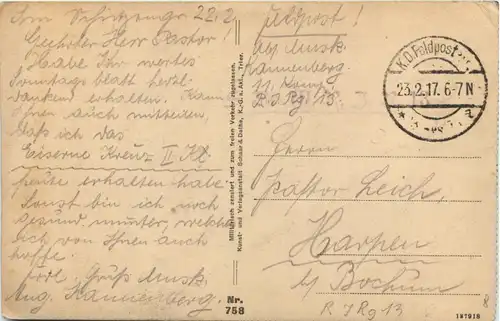 Im Schützengr. 22.2.
Geehrter Herr Pastor!
Habe Ihr wertes
Sonntagsblatt herzl.
dankend erhalten. Kann
Ihnen auch mitteilen,
daß ich das
Eiserne Kreuz II Kl.
heute erhalten habe.
Sonst bin ich noch
gesund munter, welches
ich von Ihnen auch
hoffe.
Frdl. Gruß Musk.
Aug. Kannenberg.
Militärisch zensiert und zum freien Verkehr zugelassen.
Kunst- und Verlagsanstalt Schaar & Dathe, K.-G. a. Akt., Trier.
Nr.
758
Feldpost!
Abs. Musk.
Kannenberg.
11. Komp.
R. I. Rg. 13.
K.D. Feldpost
23.2.17. 6-7 N
Herrn
Pastor Leich,
Harpen
b/ Bochum
R I Rg 13
187918